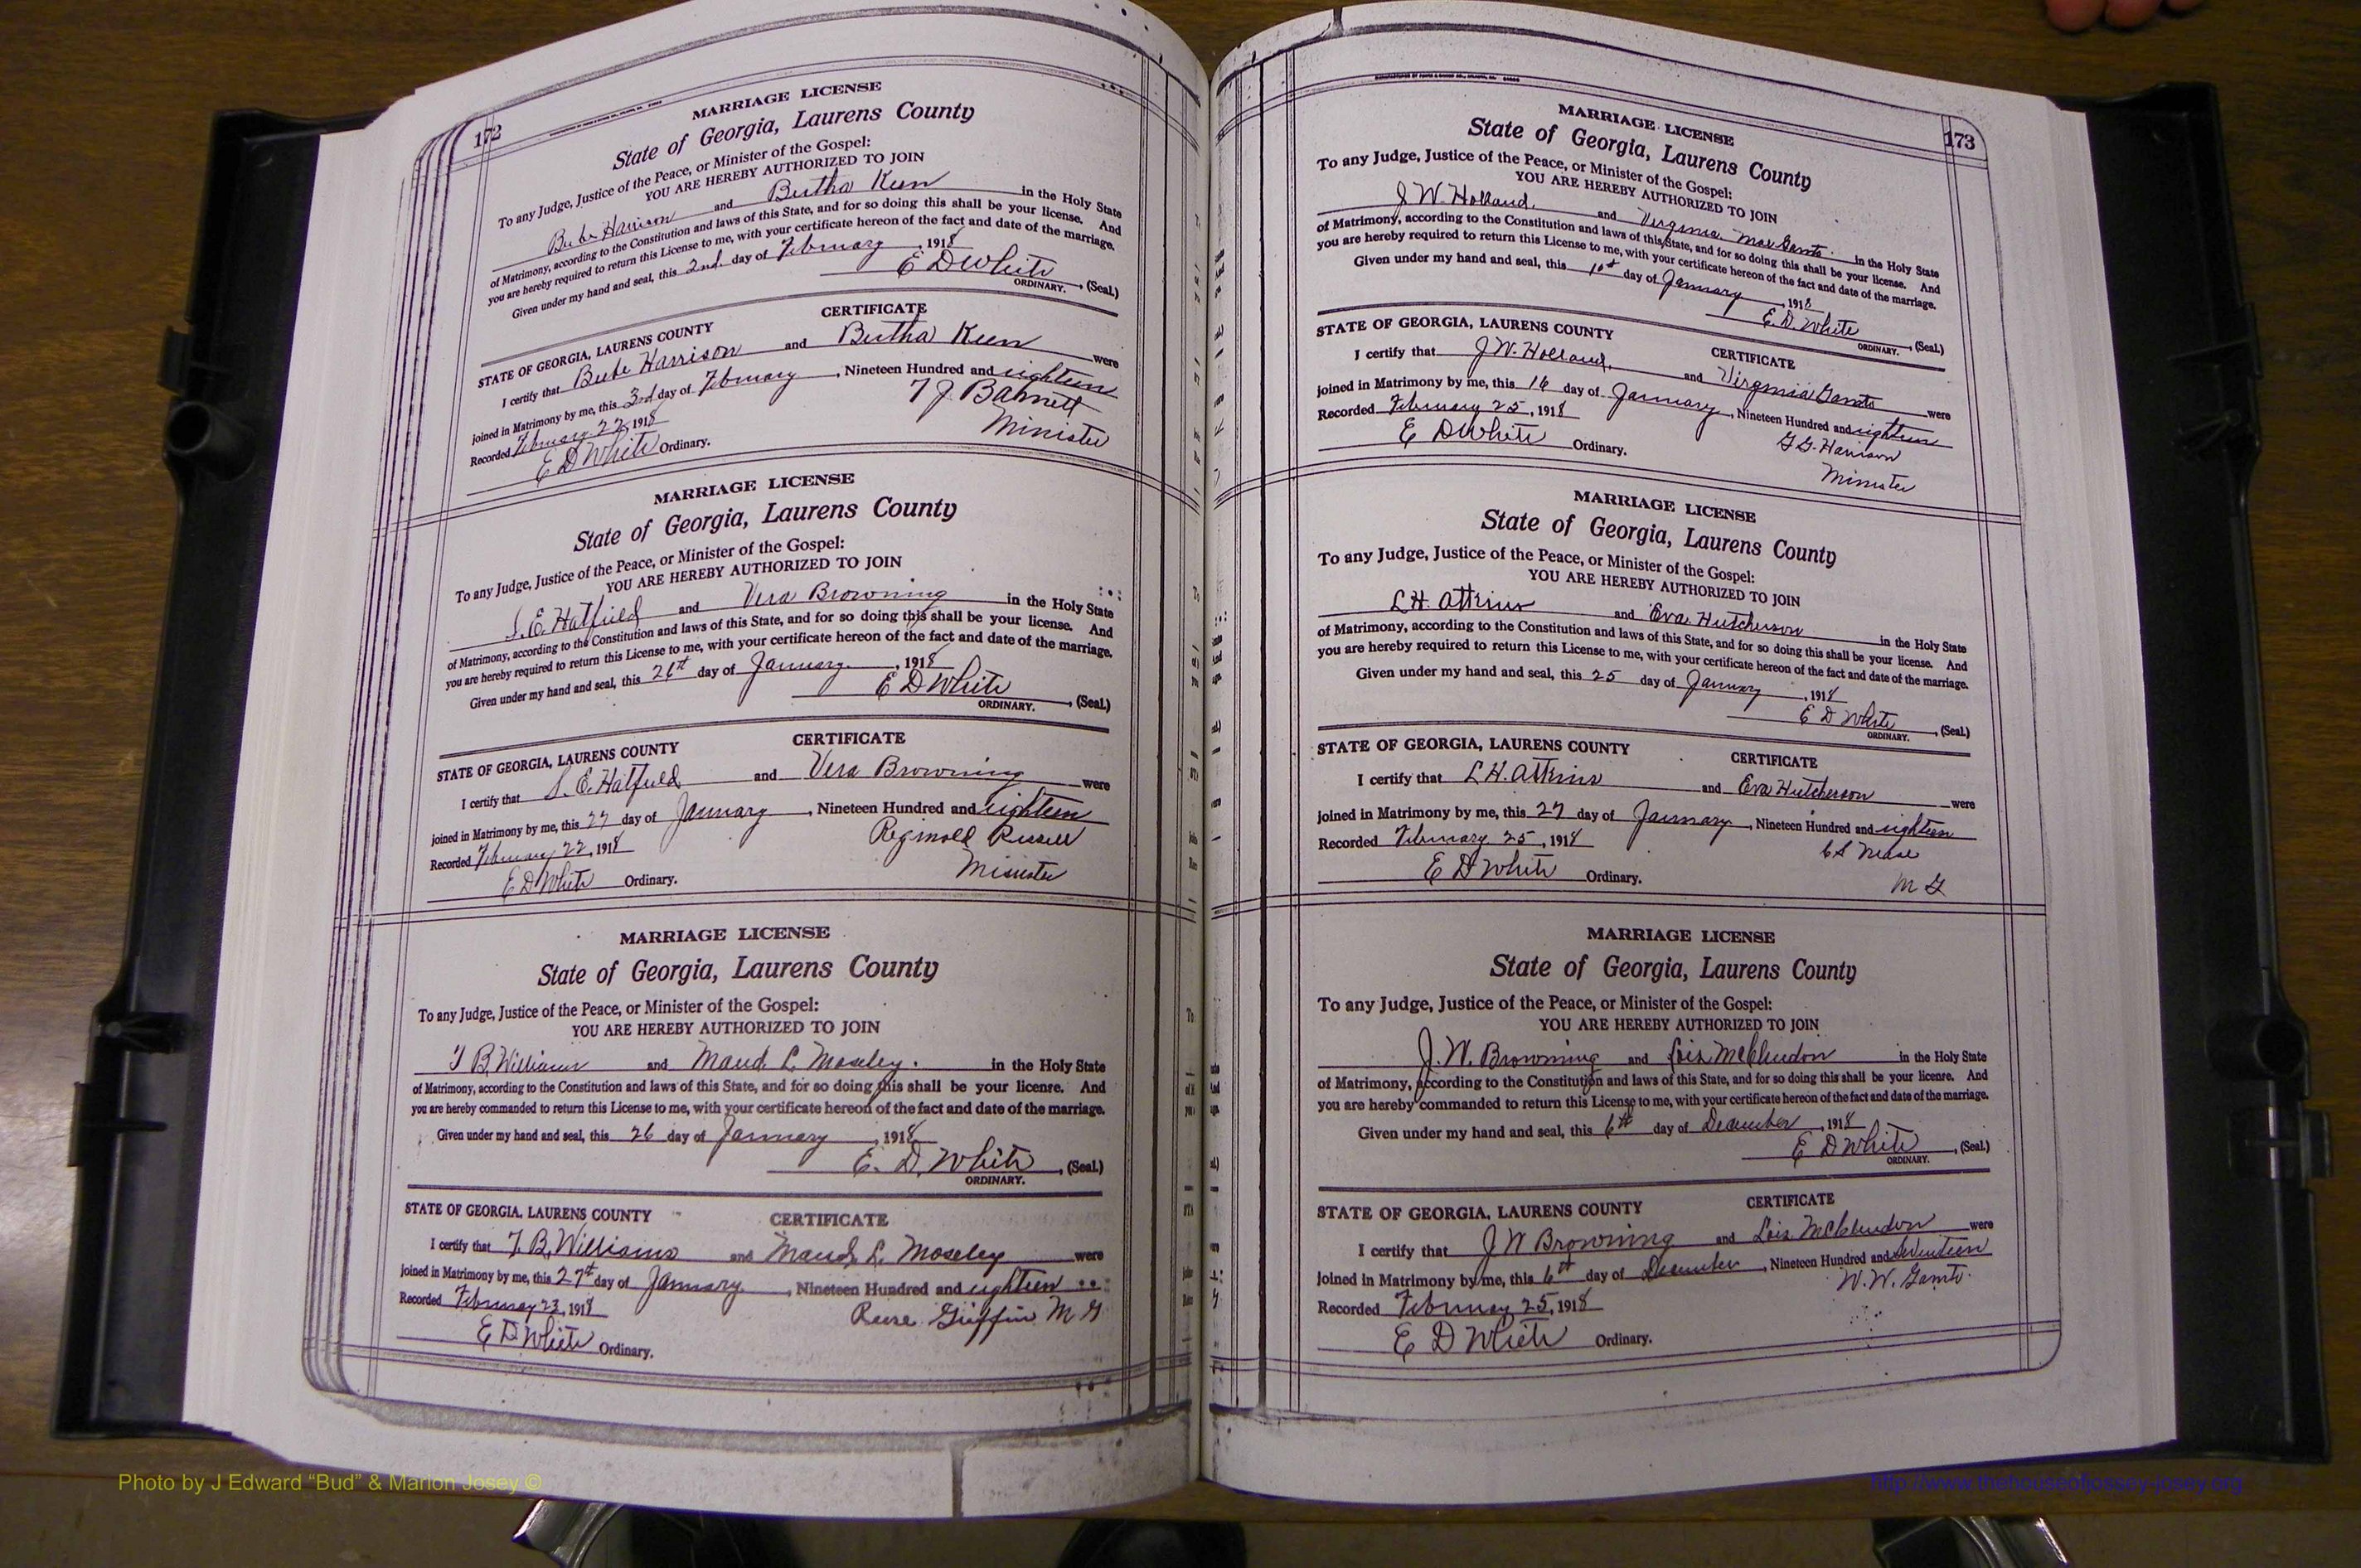 172
MARRIAGE LICENSE
State of Georgia, Laurens County
To any Judge, Justice of the Peace, or Minister of the Gospel:
YOU ARE HEREBY AUTHORIZED TO JOIN
Bube Harrison and Bertha Keen in the Holy State
of Matrimony, according to the Constitution and laws of this State, and for so doing this shall be your license. And
you are hereby required to return this License to me, with your certificate hereon of the fact and date of the marriage.
Given under my hand and seal, this 2nd day of February, 1918
E D White, (Seal.)
ORDINARY.
CERTIFICATE
STATE OF GEORGIA, LAURENS COUNTY
I certify that Bube Harrison and Bertha Keen were
joined in Matrimony by me, this 3rd day of February, Nineteen Hundred and eighteen
Recorded February 22, 1918
7 J. Barnett
E D White Ordinary.
Minister
MARRIAGE LICENSE
State of Georgia, Laurens County
To any Judge, Justice of the Peace, or Minister of the Gospel:
YOU ARE HEREBY AUTHORIZED TO JOIN
S. E. Hatfield and Vera Browning in the Holy State
of Matrimony, according to the Constitution and laws of this State, and for so doing this shall be your license. And
you are hereby required to return this License to me, with your certificate hereon of the fact and date of the marriage.
Given under my hand and seal, this 26th day of January, 1918
E D White, (Seal.)
ORDINARY.
CERTIFICATE
STATE OF GEORGIA, LAURENS COUNTY
I certify that S. E. Hatfield and Vera Browning were
joined in Matrimony by me, this 27 day of January, Nineteen Hundred and eighteen
Recorded February 22, 1918
Reginold Russell
E D White Ordinary.
Minister
MARRIAGE LICENSE
State of Georgia, Laurens County
To any Judge, Justice of the Peace, or Minister of the Gospel:
YOU ARE HEREBY AUTHORIZED TO JOIN
T B. Williams and Maud L. Moseley. in the Holy State
of Matrimony, according to the Constitution and laws of this State, and for so doing this shall be your license. And
you are hereby commanded to return this License to me, with your certificate hereon of the fact and date of the marriage.
Given under my hand and seal, this 26 day of January, 1918
E. D. White, (Seal.)
ORDINARY.
STATE OF GEORGIA, LAURENS COUNTY CERTIFICATE
I certify that T. B. Williams and Maud L. Moseley were
joined in Matrimony by me, this 27th day of January, Nineteen Hundred and eighteen
Recorded February 23, 1918
Griffin M G
E D White Ordinary.
173
MARRIAGE LICENSE
State of Georgia, Laurens County
To any Judge, Justice of the Peace, or Minister of the Gospel:
YOU ARE HEREBY AUTHORIZED TO JOIN
J W. Holland, and Virginia Mae Gantt. in the Holy State
of Matrimony, according to the Constitution and laws of this State, and for so doing this shall be your license. And
you are hereby required to return this License to me, with your certificate hereon of the fact and date of the marriage.
Given under my hand and seal, this day of January, 1918
E. D. White, (Seal.)
ORDINARY.
STATE OF GEORGIA, LAURENS COUNTY CERTIFICATE
I certify that J W. Holland, and Virginia Gantt were
joined in Matrimony by me, this 16 day of January, Nineteen Hundred and eighteen
Recorded February 25, 1918
G G. Harrison
E D White Ordinary.
Minister
MARRIAGE LICENSE
State of Georgia, Laurens County
To any Judge, Justice of the Peace, or Minister of the Gospel:
YOU ARE HEREBY AUTHORIZED TO JOIN
L H. Atkins and Eva Hutcherson in the Holy State
of Matrimony, according to the Constitution and laws of this State, and for so doing this shall be your license. And
you are hereby required to return this License to me, with your certificate hereon of the fact and date of the marriage.
Given under my hand and seal, this 25 day of January, 1918
E D White, (Seal.)
ORDINARY.
STATE OF GEORGIA, LAURENS COUNTY CERTIFICATE
I certify that L H. Atkins and Eva Hutcherson were
joined in Matrimony by me, this 27 day of January, Nineteen Hundred and eighteen
Recorded February 25, 1918
E D White Ordinary.
M G
MARRIAGE LICENSE
State of Georgia, Laurens County
To any Judge, Justice of the Peace, or Minister of the Gospel:
YOU ARE HEREBY AUTHORIZED TO JOIN
J. W. Browning and Lois McClendon in the Holy State
of Matrimony, according to the Constitution and laws of this State, and for so doing this shall be your license. And
you are hereby commanded to return this License to me, with your certificate hereon of the fact and date of the marriage.
Given under my hand and seal, this 6th day of December, 1918
E D White, (Seal.)
ORDINARY.
STATE OF GEORGIA, LAURENS COUNTY CERTIFICATE
I certify that J W Browning and Lois McClendon were
joined in Matrimony by me, this 6th day of December, Nineteen Hundred and Seventeen
W. W. Gantt.
Recorded February 25, 1918
E D White Ordinary.
Photo by J Edward “Bud” & Marlon Josey ©
http://www.thehouseofjossey-josey.org